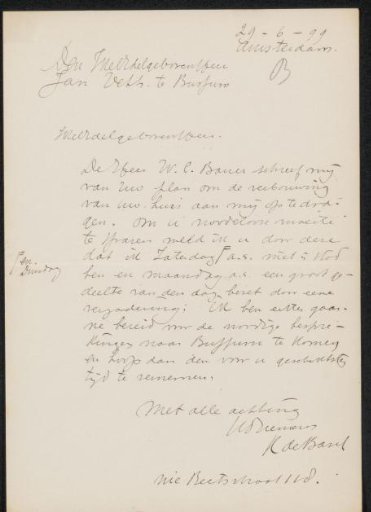 29-6-99
Amsterdam.
Den WelEdelgeboren Heer
Jan Veth. te Bussum
WelEdelgeboren Heer.
De Heer W. C. Bauer schreef mij
van Uw plan om de verbouwing
van uw huis aan mij op te dra-
gen. Om U noodeloos moeite
te sparen meld ik u door deze
dat ik Zaterdag a.s. niet
en Zondag
ben en maandag a.s. een groot ge-
deelte van den dag bezet door eene
vergadering. Ik ben echter gaar-
ne bereid voor de noodige bespre-
kingen naar Bussum te komen
en hoop dan den voor u geschiktsten
tijd te vernemen.
Met alle achting
UDienaar
K de Bazel